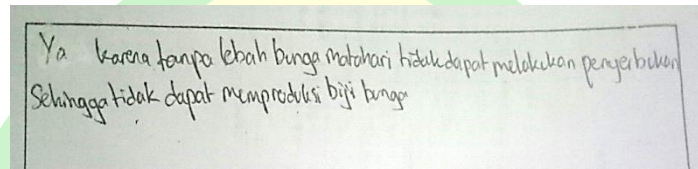 Ya karena tanpa lebah bunga matahari tidak dapat melakukan penyerbukan
Sehingga tidak dapat memproduksi biji bunga